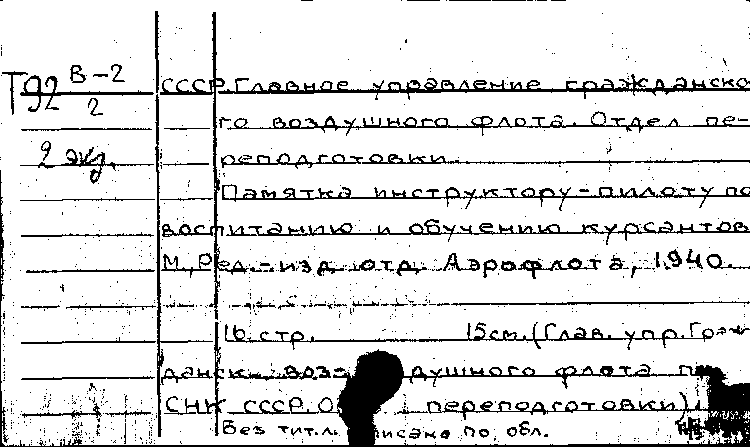 Т92 В-2/2
2 экз.
СССР. Главное управление гражданско
го воздушного флота. Отдел пе-
реподготовки.
Памятка инструктору-пилоту по
воспитанию и обучению курсантов
М., Ред.-изд. отд. Аэрофлота, 1940.
16 стр. 15см. (Глав. упр. Граж
данск. возд душного флота п
СНК СССР. О переподготовки)
Без тит.л. писано по обл.